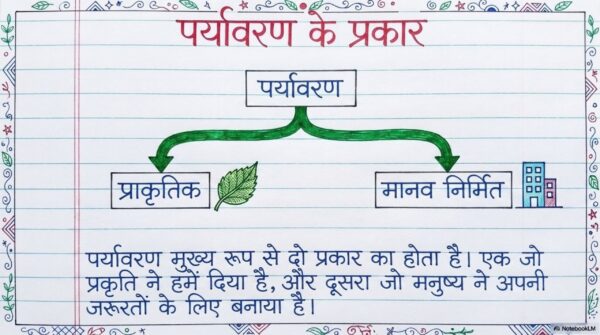 पर्यावरण के प्रकार
पर्यावरण
प्राकृतिक
मानव निर्मित
पर्यावरण मुख्य रूप से दो प्रकार का होता है। एक जो
प्रकृति ने हमें दिया है, और दूसरा जो मनुष्य ने अपनी
जरूरतों के लिए बनाया है।
NotebookLM